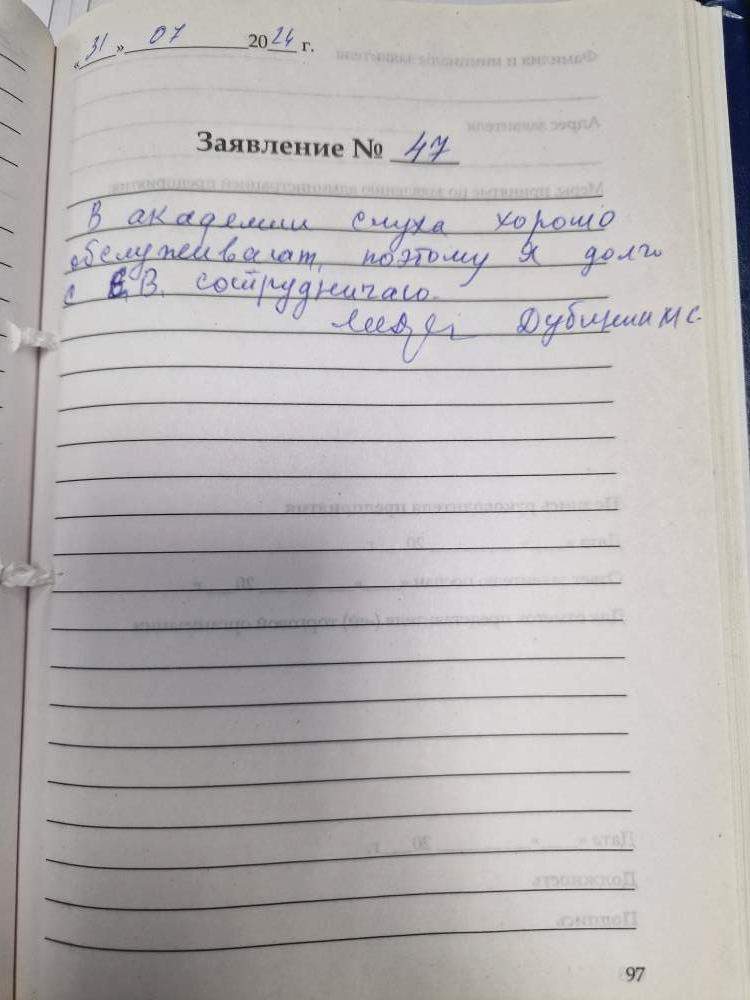 «31» 07 2024 г.
Заявление № 47
В академии слуха хорошо
обслуживают, поэтому я долго
с Е.В. сотрудничаю.
Дубинин М С.
97